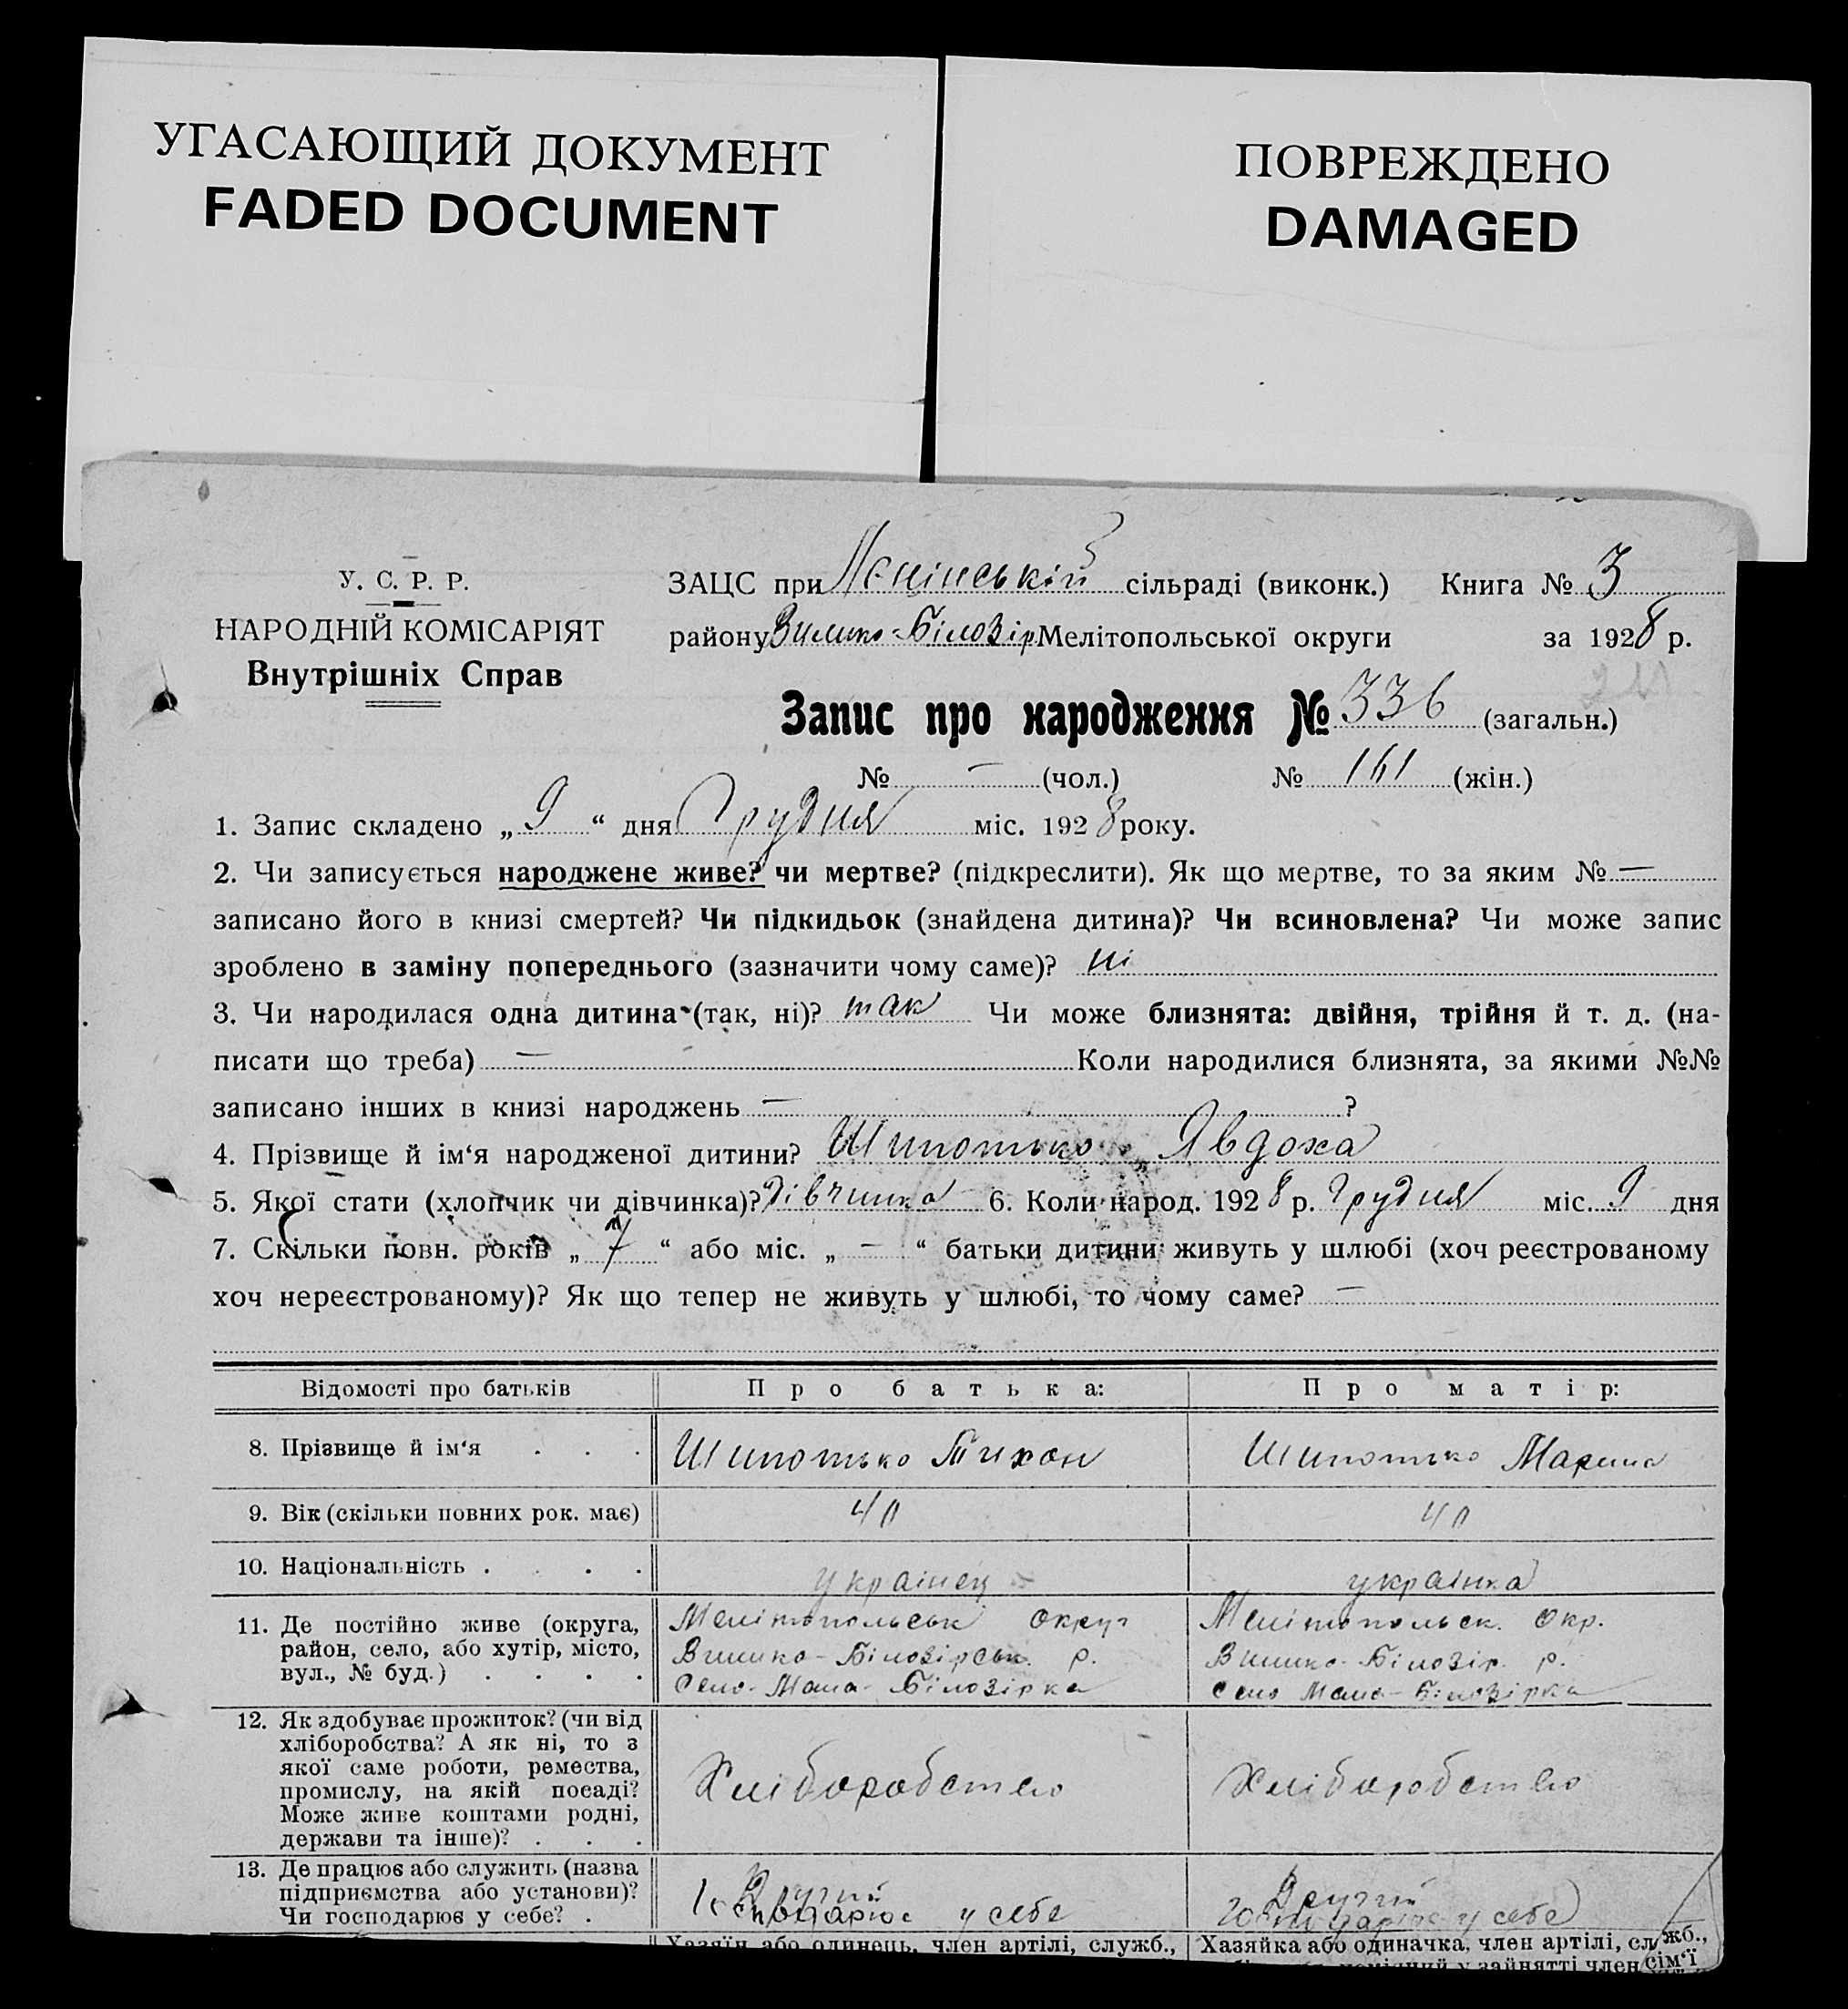 УГАСАЮЩИЙ ДОКУМЕНТ
FADED DOCUMENT
ПОВРЕЖДЕНО
DAMAGED
У. С. Р. Р.
НАРОДНІЙ КОМІСАРІЯТ
Внутрішніх Справ
ЗАЦС при Ленінській сільраді (виконк.) Книга № 3
району Велико-Білозір Мелітопольської округи за 1928 р.
Запис про народження № 336 (загальн.)
№ — (чол.) № 161 (жін.)
1. Запис складено „ 9 “ дня Грудня міс. 1928 року.
2. Чи записується народжене живе? чи мертве? (підкреслити). Як що мертве, то за яким № —
записано його в книзі смертей? Чи підкидьок (знайдена дитина)? Чи всиновлена? Чи може запис
зроблено в заміну попереднього (зазначити чому саме)? ні
3. Чи народилася одна дитина (так, ні)? так Чи може близнята: двійня, трійня й т. д. (на-
писати що треба) — Коли народилися близнята, за якими №№
записано інших в книзі народжень — ?
4. Прізвище й ім‘я народженої дитини? Шипотько Явдоха
5. Якої стати (хлопчик чи дівчинка)? дівчинка 6. Коли народ. 1928 р. Грудня міс. 9 дня
7. Скільки повн. років „ 7 “ або міс. „ — “ батьки дитини живуть у шлюбі (хоч реєстрованому
хоч нереєстрованому)? Як що тепер не живуть у шлюбі, то чому саме? —
Відомості про батьків Про батька: Про матір:
8. Прізвище й ім‘я . . . Шипотько Тихон Шипотько Марина
9. Вік (скільки повних рок. має) 40 40
10. Національність . . . . українец українка
11. Де постійно живе (округа, район, село, або хутір, місто, вул., № буд.) . . . .
Мелітопольськ округ
Велико-Білозірськ. р.
Село-Мала-Білозірка
Мелітопольск. окр.
Велико-Білозір. р.
село Мала-Білозірка
12. Як здобуває прожиток? (чи від
хліборобства? А як ні, то з
якої саме роботи, ремества,
промислу, на якій посаді?
Може живе коштами родні,
держави та інше)? . . .
Хліборобство
Хліборобство
13. Де працює або служить (назва
підприємства або установи)?
Чи господарює у себе? .
Господарює у себе
у себе
Хазяїн або одинець, член артілі, служб., Хазяйка або одиначка, член артілі, служб.,
у зайнятті член сім‘ї